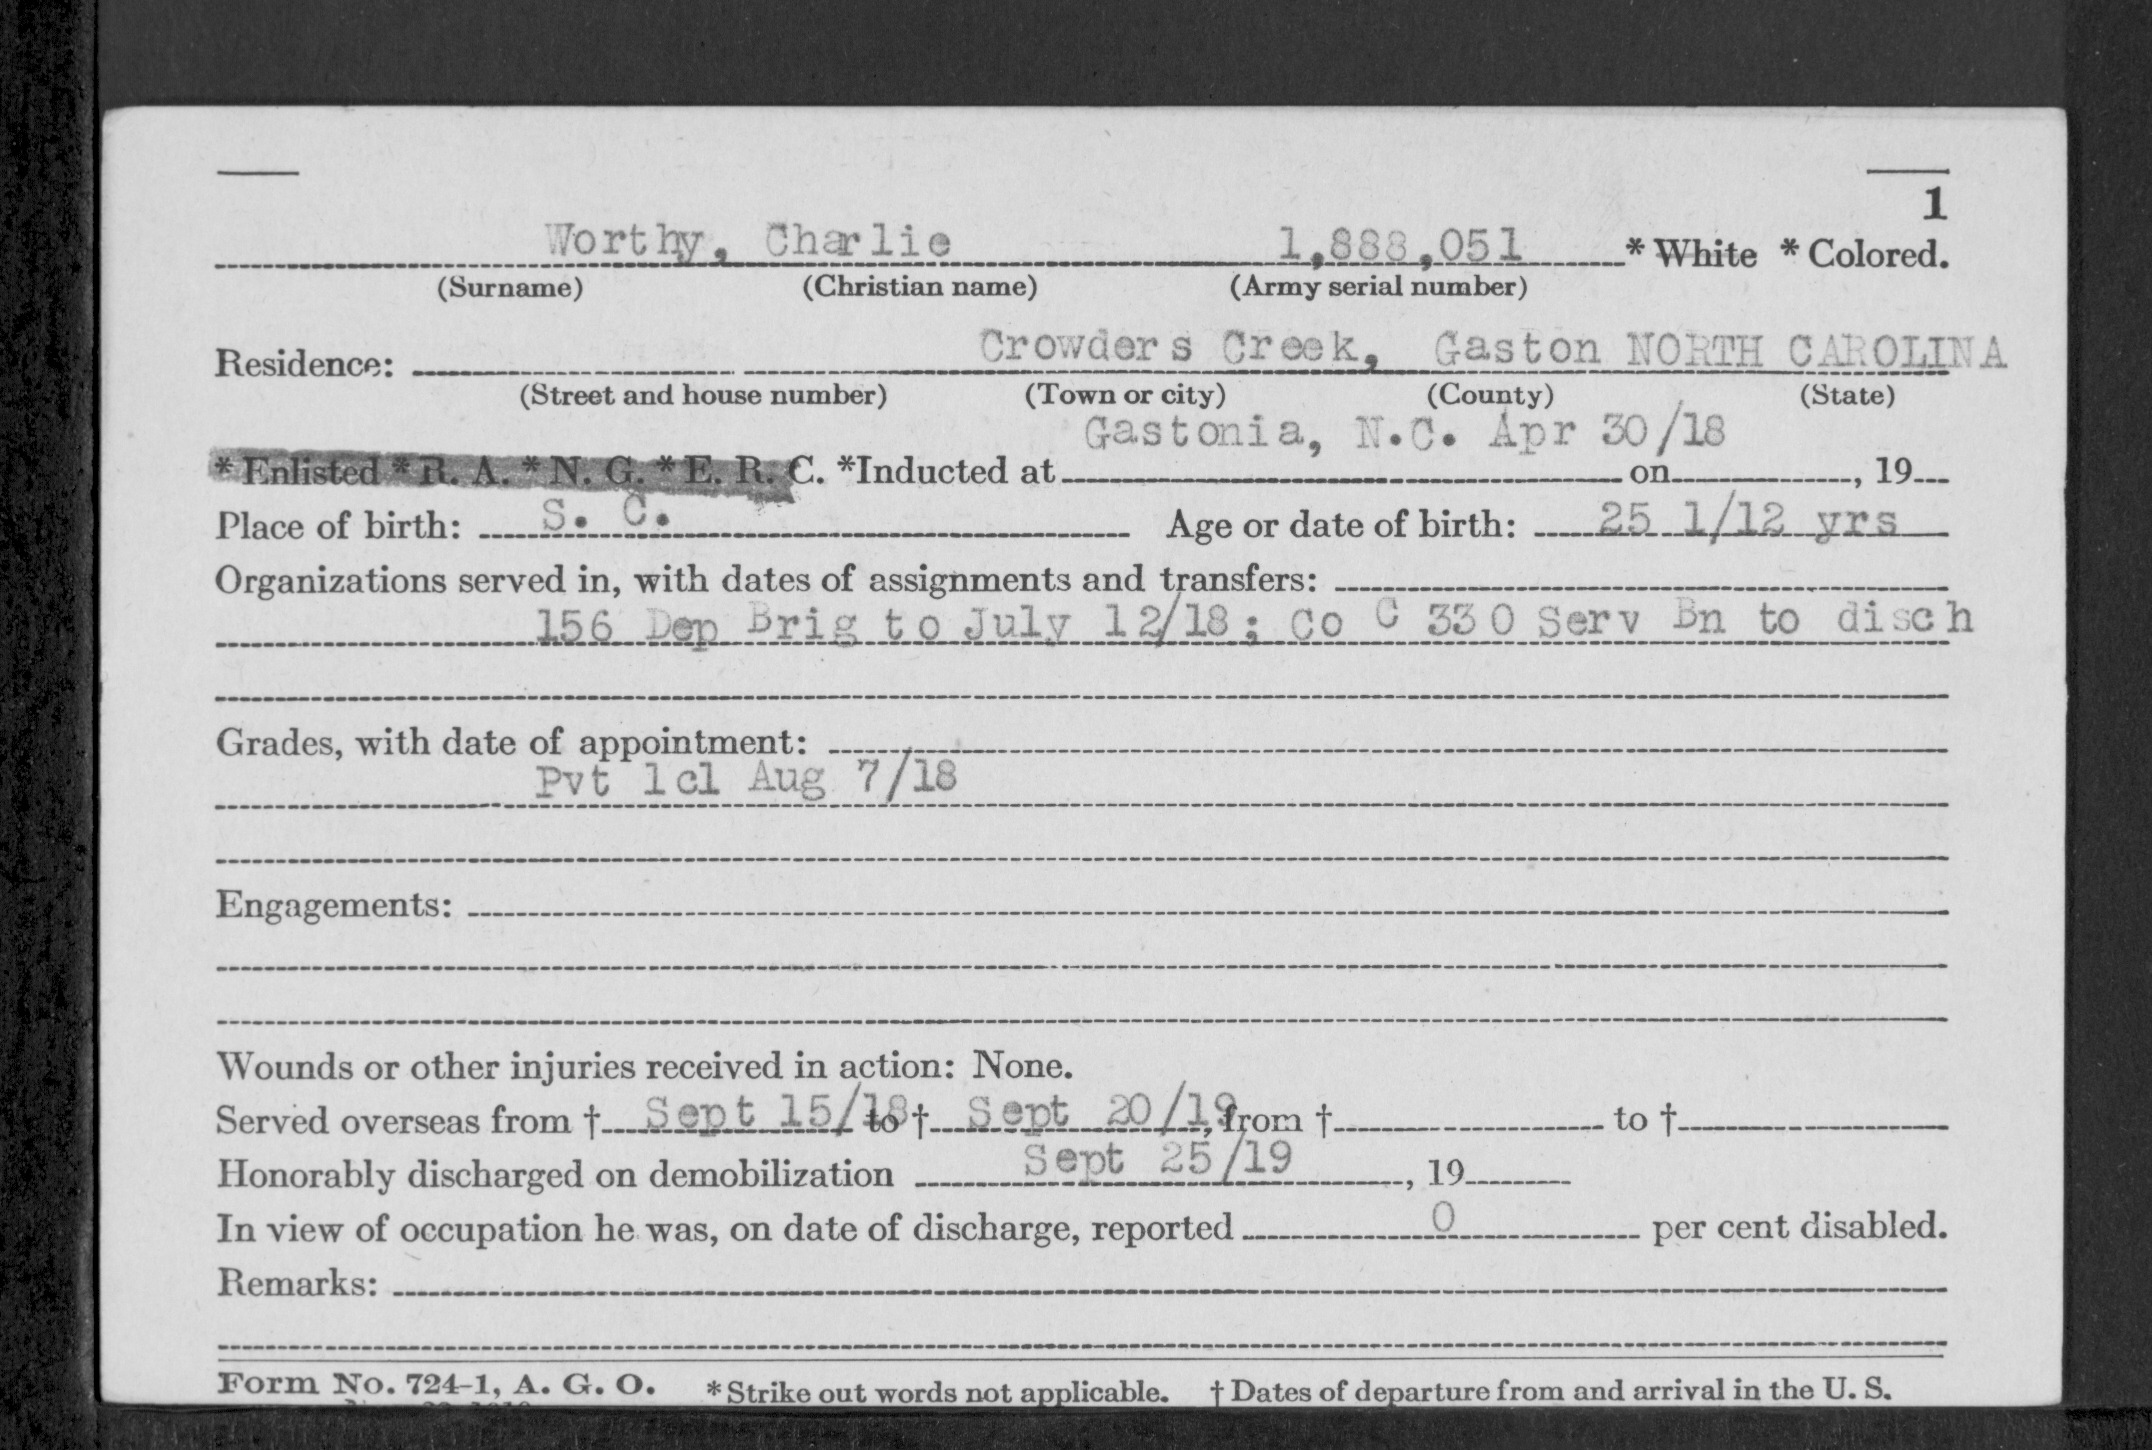 1
Worthy, Charlie 1,888,051 * White * Colored.
(Surname) (Christian name) (Army serial number)
Residence: Crowders Creek, Gaston NORTH CAROLINA
(Street and house number) (Town or city) (County) (State)
Gastonia, N.C. Apr 30/18
* Enlisted * R. A. * N. G. * E. R. C. *Inducted at on , 19
Place of birth: S. C. Age or date of birth: 25 1/12 yrs
Organizations served in, with dates of assignments and transfers:
156 Dep Brig to July 12/18; Co C 330 Serv Bn to disch
Grades, with date of appointment:
Pvt 1cl Aug 7/18
Engagements:
Wounds or other injuries received in action: None.
Served overseas from † Sept 15/18 to † Sept 20/19, from † to †
Honorably discharged on demobilization Sept 25/19 , 19
In view of occupation he was, on date of discharge, reported 0 per cent disabled.
Remarks:
Form No. 724-1, A. G. O. * Strike out words not applicable. † Dates of departure from and arrival in the U. S.